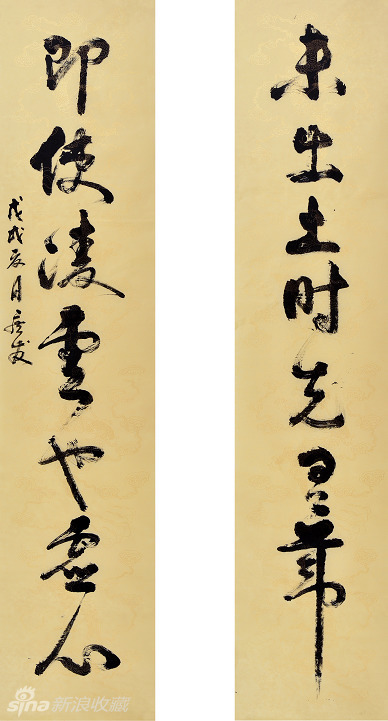 未出土时先节
即使凌雲也虚心
戊戌夏月
sina新浪收藏